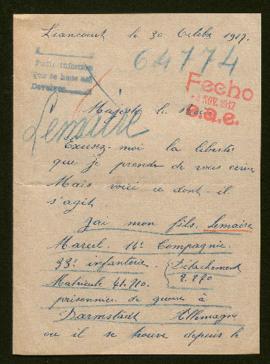 Liancourt le 30 Octobre 1917.
64774
Fecho
NOV. 1917
Majesté le
Lemaire
Excusez-moi la liberté
que je prends de vous écrire
Mais voici ce dont il
s'agit
J'ai mon fils, Lemaire
Marcel. 14e Compagnie.
93e infanterie. Détachement
Matricule
prisonnier de guerre à
Darmstadt Allemagne
ou il se trouve depuis le